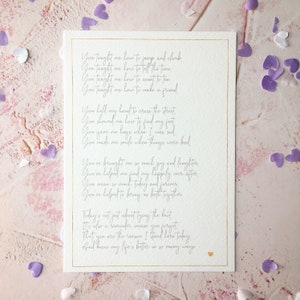 You taught me how to jump and climb
You taught me how to tell the time
You taught me how to count to ten
You taught me how to make a friend
You held my hand to cross the street
You showed me how to find my feet
You gave me hugs when I was sad
You made me smile when things were bad
You've brought me so much joy and laughter
You've helped me find my happily ever after
You mean so much today and forever
You've helped to bring us both together
Today's not just about tying the knot
It's also a reminder
That you are the reason I stand here today
And have my life's better in so many ways